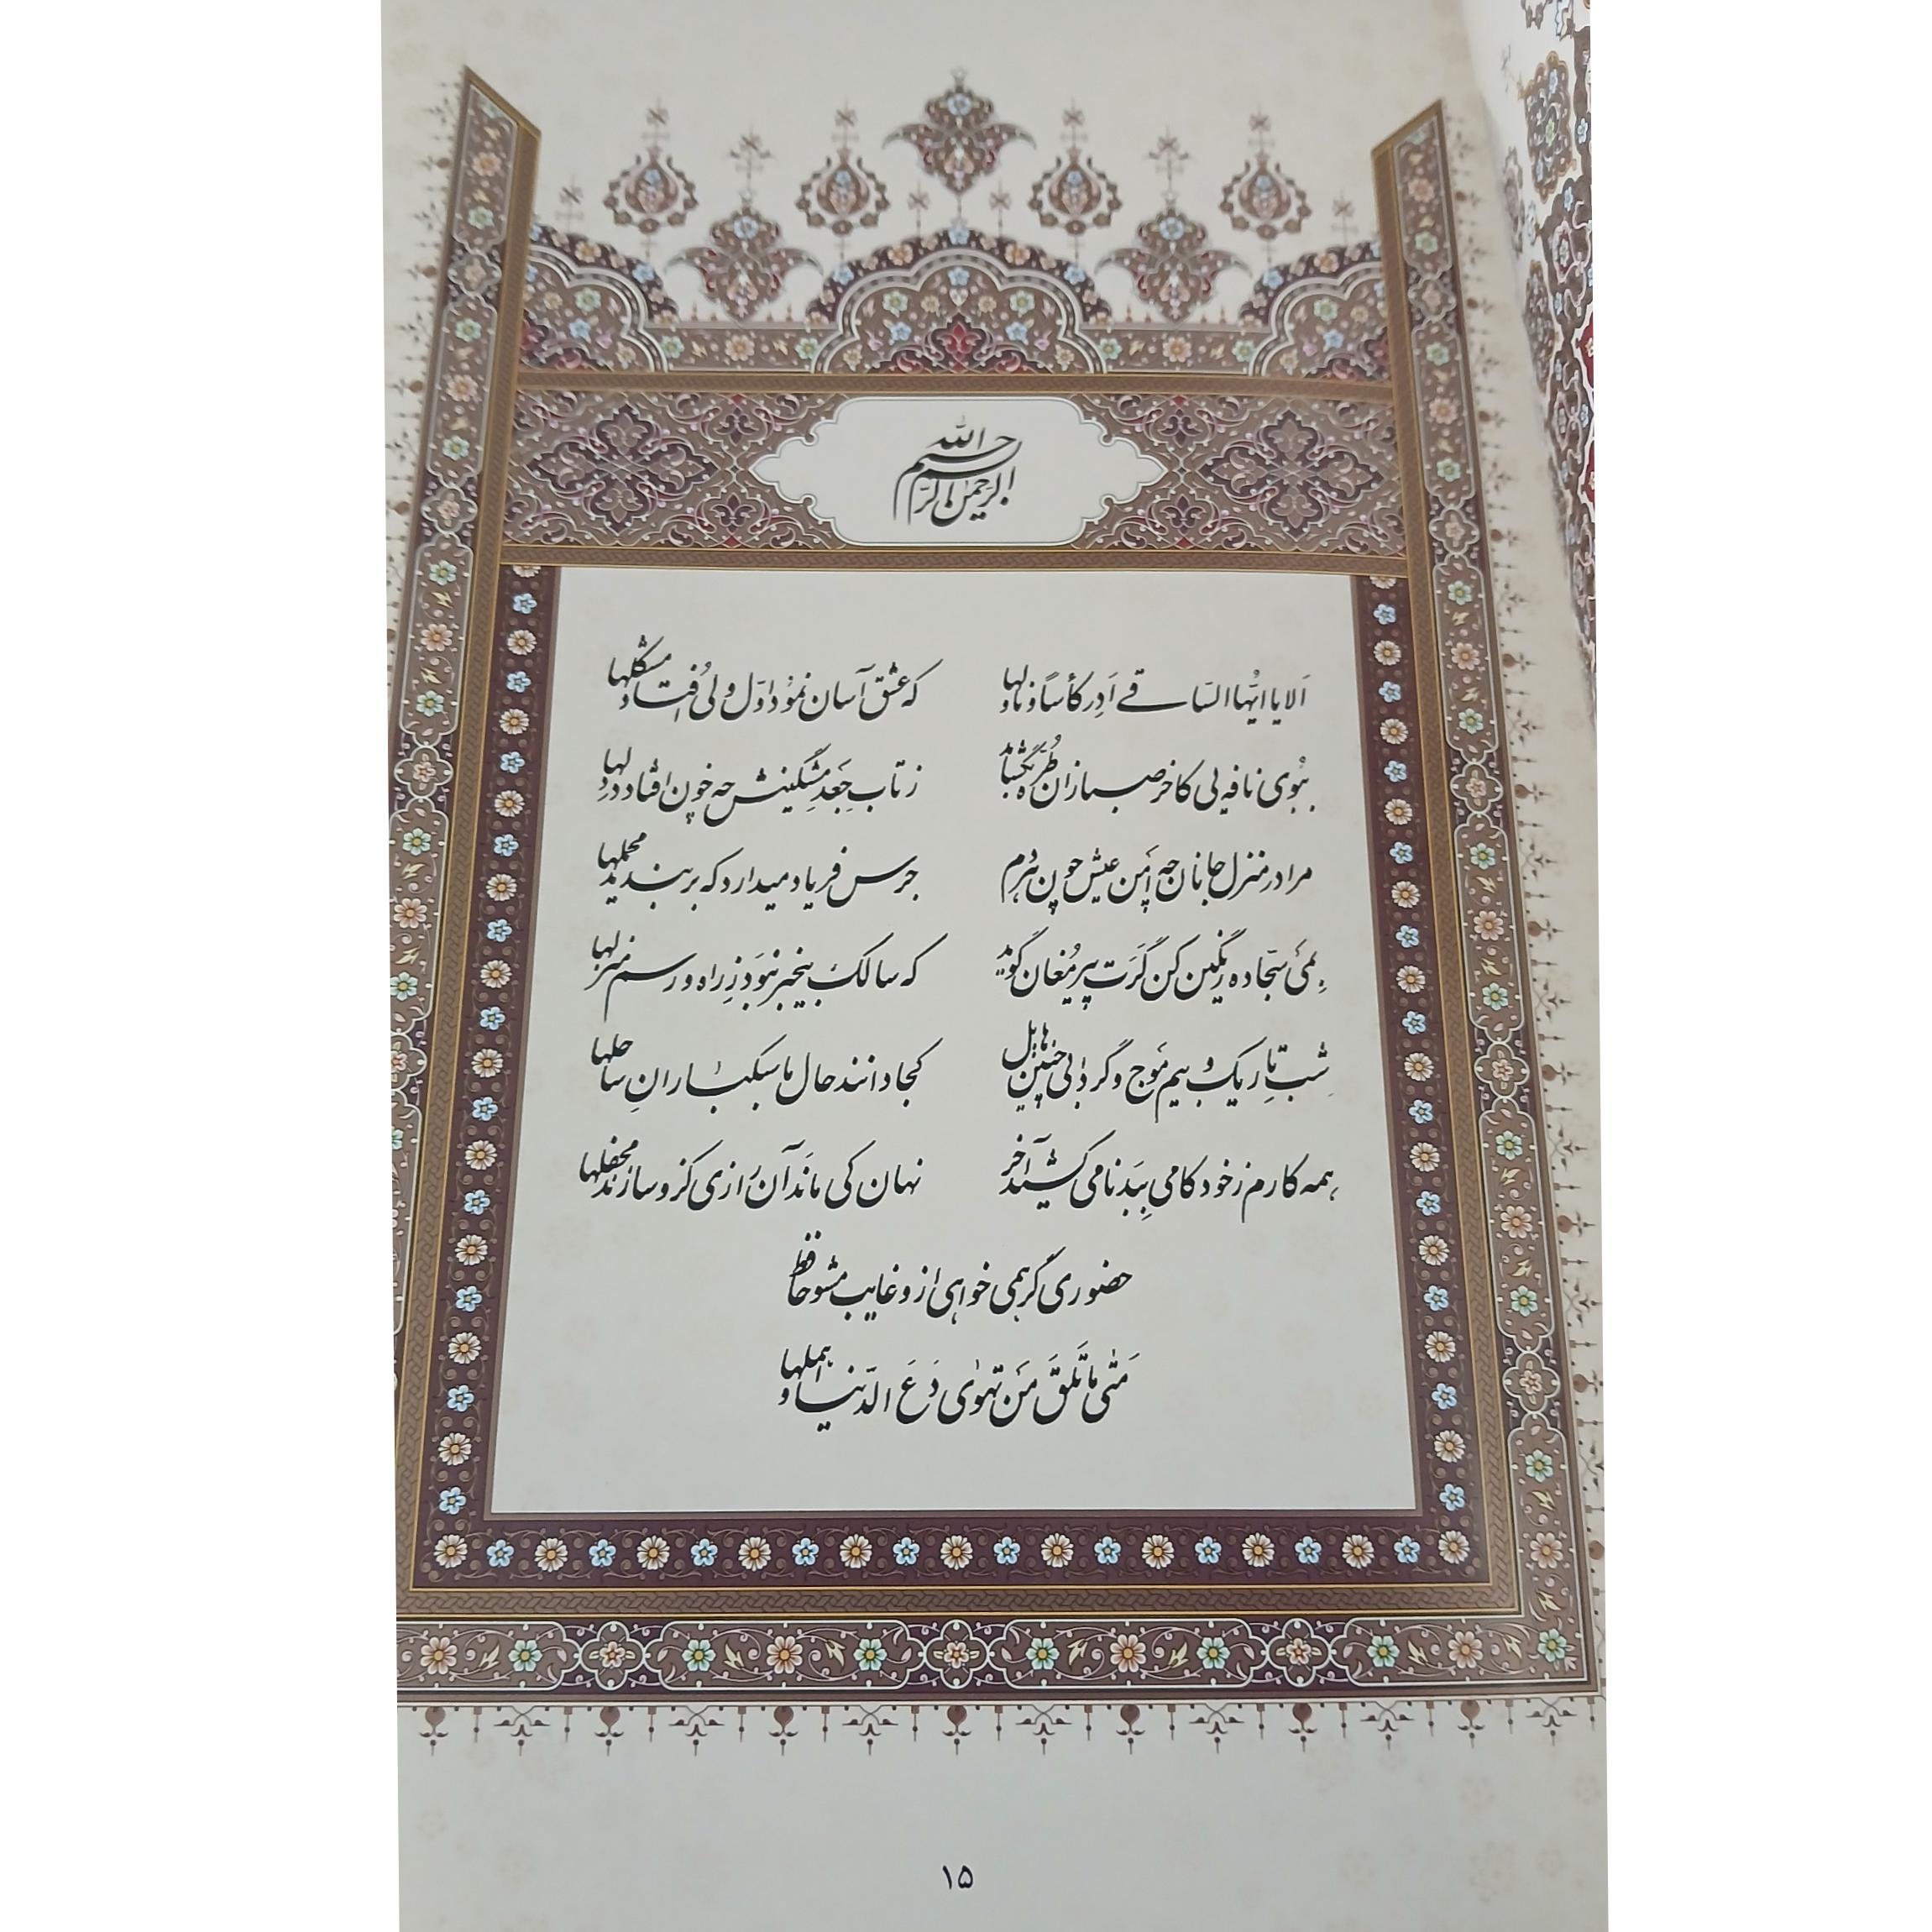 بسم الله الرحمن الرحیم
اَلا یا ایُّها السّاقے اَدِر کأساً و ناوِلها که عشق آسان نمود اوّل ولی اُفتاد مشکلها
ببوی نافه‌یی کاخر صبا زان طُرّه بگشاید ز تاب جَعد مِشگینش چه خون افتاد در دلها
مرا در منزل جانان چه اَمن عیش چون هردم جرس فریاد میدارد که بربندید محملها
بمی سجّاده رنگین کن گَرَت پیر مُغان گوید که سالک بیخبر نبوَد زِ راه و رسم منزلها
شب تاریک و بیم مَوج و گردابی چنین هایل کجا دانند حال ما سبکباران ساحلها
همه کارم ز خود کامی ببَدنامی کشید آخر نهان کی مانَد آن رازی کزو سازند محفلها
حضوری گر همی خواهی ازو غایب مشو حافظ
مَتٰی ما تَلقَ مَن تهوٰی دَعِ الدّنیا و اهملها
۱۵